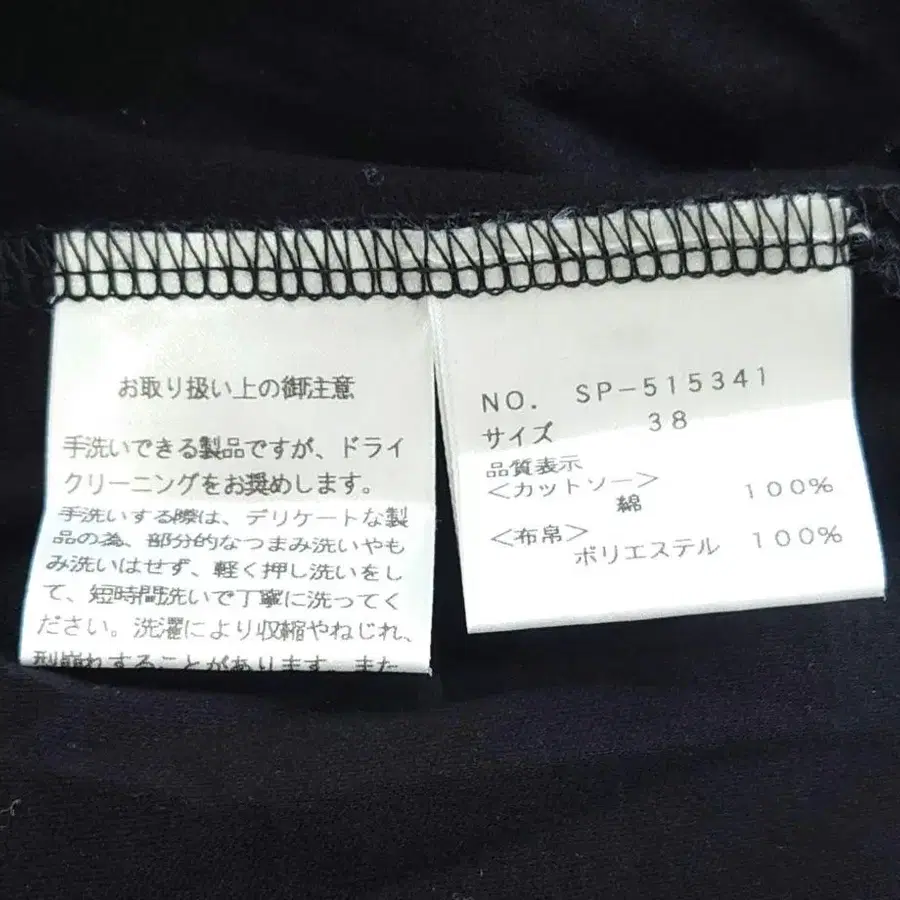 お取り扱い上の御注意
手洗いできる製品ですが、ドライ
クリーニングをお奨めします。
手洗いする際は、デリケートな製
品の為、部分的なつまみ洗いやも
み洗いはせず、軽く押し洗いをし
て、短時間洗いで丁寧に洗ってく
ださい。洗濯により収縮やねじれ、
型崩れすることがあります。また
NO. SP-515341
サイズ 38
品質表示
<カットソー>
綿 100%
<布帛>
ポリエステル 100%